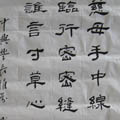 慈母手中線
臨行密密縫
誰言寸草心